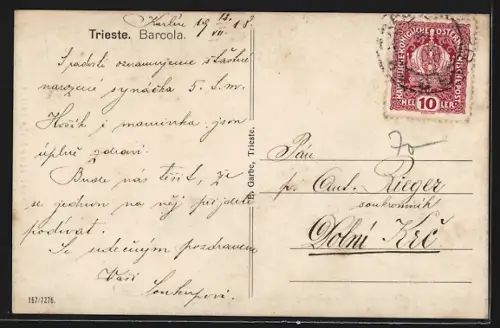 Trieste. Barcola.
Karlín 19 15./VII. 18
S radostí oznamujeme šťastné
narození synáčka 5. t.m.
Hošík i maminka jsou
úplně zdraví.
Bude nás těšit, že
se jednou na něj přijdete
podívat.
Se srdečným pozdravem
Vaši
Soukupovi.
167/7276.
E. Garbe, Trieste.
KAISERLICHE KÖNIGLICHE ÖSTERREICHISCHE POST
HELLER
10
70
Pán
p. Ant. Rieger
soukromník
Dolní Krč